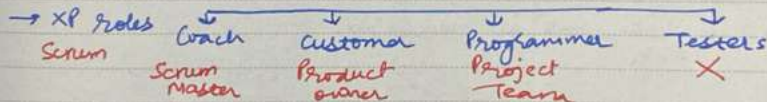 → XP roles Coach Customer Programmer Testers
Scrum Scrum Master Product owner Project Team X